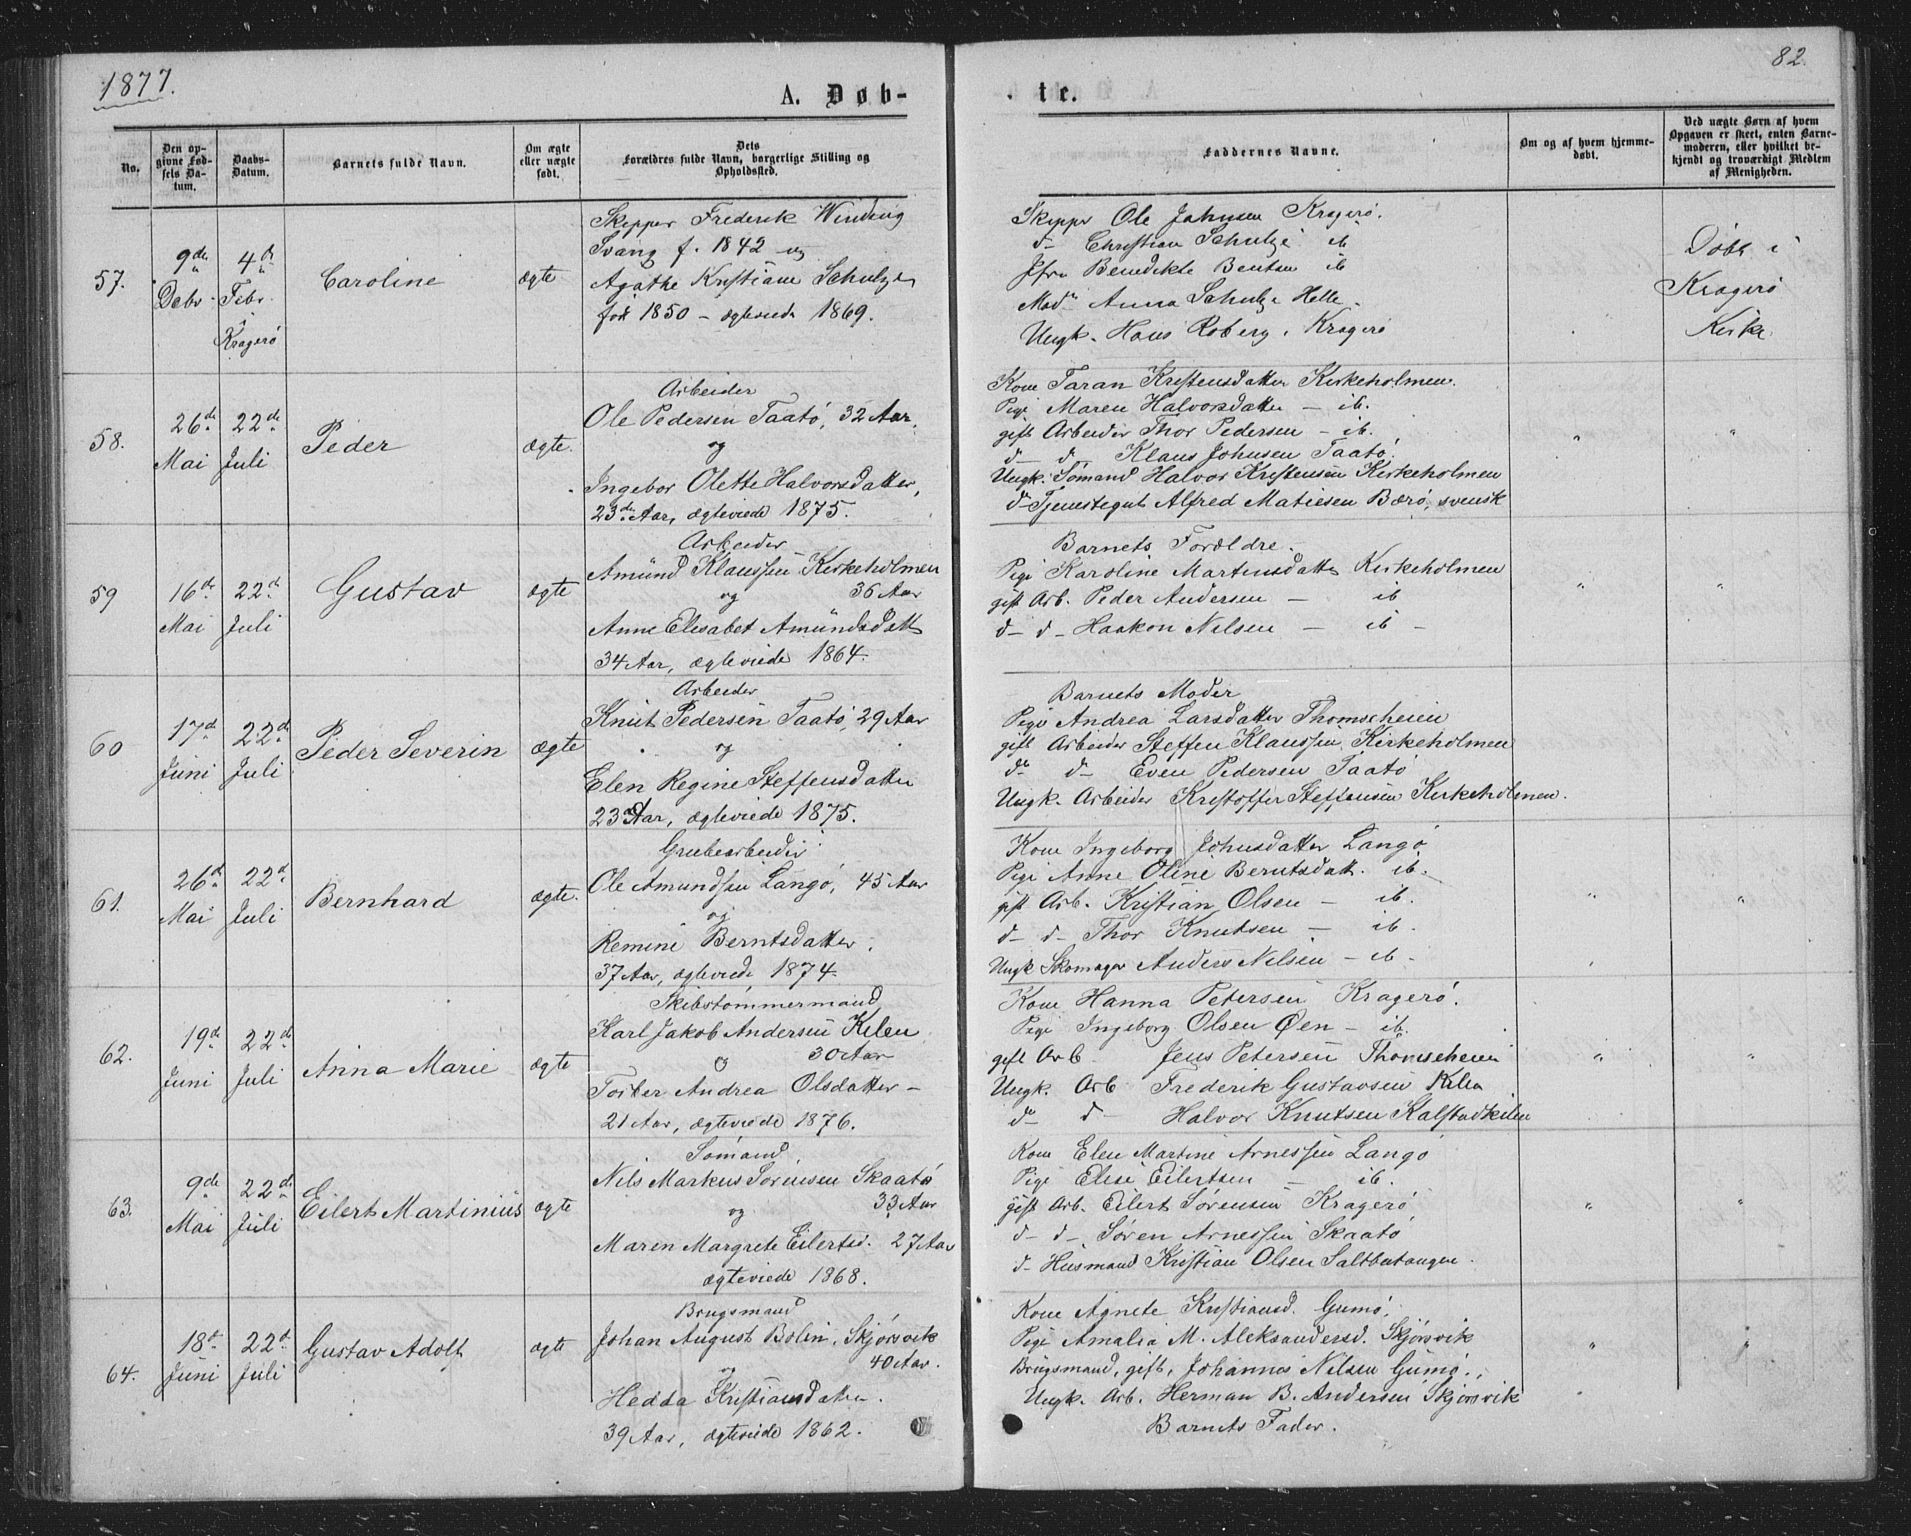 1877.
82.
A. Døb-
te.
No.
Den op-
givne Fød-
sels Da-
tum.
Daabs-
Datum.
Barnets fulde Navn.
Om ægte
eller uægte
født.
Dets
Forældres fulde Navn, borgerlige Stilling og
Opholdssted.
Faddernes Navne.
Om og af hvem hjemme-
døbt.
Ved uægte Børn af hvem
Opgaven er skeet, enten Barne-
moderen, eller hvilket be-
kjendt og troværdigt Medlem
af Menigheden.
57.
9de
Debr.
4de
Febr.
i
Kragerø
Caroline
ægte
Skipper Frederik Winding
Svang f. 1842 og
Agathe Kristiane Schulze
fød 1850 - ægteviede 1869.
Skipper Ole Johnsen Kragerø.
d- Christian Schulze ib
Jfru Benedikte Bentsen ib
Mad. Anna Schulze Helle.
Ungk. Hans Roberg, Kragerø
Døbt i
Kragerø
Kirke
58.
26de
Mai
22de
Juli
Peder
ægte.
Arbeider
Ole Pedersen Taatø, 32 Aar,
og
Ingebor Olette Halvorsdatter,
23de Aar, ægteviede 1875.
Kone Taran Kristensdatter Kirkeholmen.
Pige Maren Halvorsdatter - ib.
gift Arbeider Thor Pedersen - ib.
d- d- Klaus Johnsen Taatø.
Ungk. Sømand Halvor Kristensen Kirkeholmen
d- Tjenestegut Alfred Matiesen Bærø, svensk
59
16de
Mai
22de
Juli
Gustav
ægte
Arbeider
Amund Klaussen Kirkeholmen
og 36 Aar
Anne Elisabet Amundsdatt
34 Aar, ægteviede 1864.
Barnets Forældre.
Pige Karoline Martinsdatter Kirkeholmen
gift Arb. Peder Andersen - ib
d- d- Haakon Nilsen - ib -
60
17de
Juni
22de
Juli
Peder Severin
ægte
Arbeider
Knut Pedersen Taatø, 29 Aar
og
Elen Regine Steffensdatter
23 Aar, ægteviede 1875.
Barnets Moder
Pige Andrea Larsdatter Thomseheien
gift Arbeider Steffen Klaussen Kirkeholmen
d- d- Even Pedersen Taatø
Ungk. Arbeider Kristoffer Steffensen Kirkeholmen.
61.
26de
Mai
22de
Juli
Bernhard
ægte.
Grubearbeider
Ole Amundsen Langø, 45 Aar
og
Remine Berntsdatter.
37 Aar, ægteviede 1874.
Kone Ingeborg Johnsdatter Langø
Pige Anne Oline Berntsdatt. ib.
gift Arb. Kristian Olsen - ib.
d- d- Thor Knutsen - ib.
Ungk Skomager Anders Nilsen - ib -
62.
19de
Juni
22de
Juli
Anna Marie
ægte
Skibstømmermand
Karl Jakob Andersen Kilen
og 30 Aar
Torber Andrea Olsdatter -
21 Aar, ægteviede 1876.
Kone Hanna Petersen Kragerø.
Pige Ingeborg Olsen Øen - ib.
gift Arb. Jens Petersen Thomseheien
Ungk. Arb Frederik Gustavsen Kilen
d- d- Halvor Knutsen Kalstadkilen
63.
9de
Mai
22de
Juli
Eilert Martinius
ægte
Sømand
Nils Markus Sørensen Skaatø
og 33 Aar
Maren Margrete Eilertsd. 27 Aar
ægteviede 1868.
Kone Elen Martine Arnessen Langø
Pige Elise Eilertsen - ib.
gift Arb. Eilert Sørensen Kragerø
d- d- Søren Arnessen Skaatø
d- Husmand Kristian Olsen Saltbutangen.
64.
18de
Juni
22de
Juli
Gustav Adolf
ægte
Brugsmand
Johan August Bolin, Skjørsvik
og 40 Aar.
Hedda Kristiansdatter.
39 Aar, ægteviede 1862.
Kone Agnete Kristiansd. Gumø,
Pige Amalia M. Aleksandersd. Skjørsvik
Brugsmand, gift, Johannes Nilsen Gumø,
Ungk. Arb. Herman B. Andersen Skjørsvik
Barnets Fader.